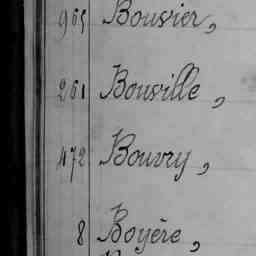 965 Bouvier,
261 Bouville,
472 Bouvry,
8 Boyère,